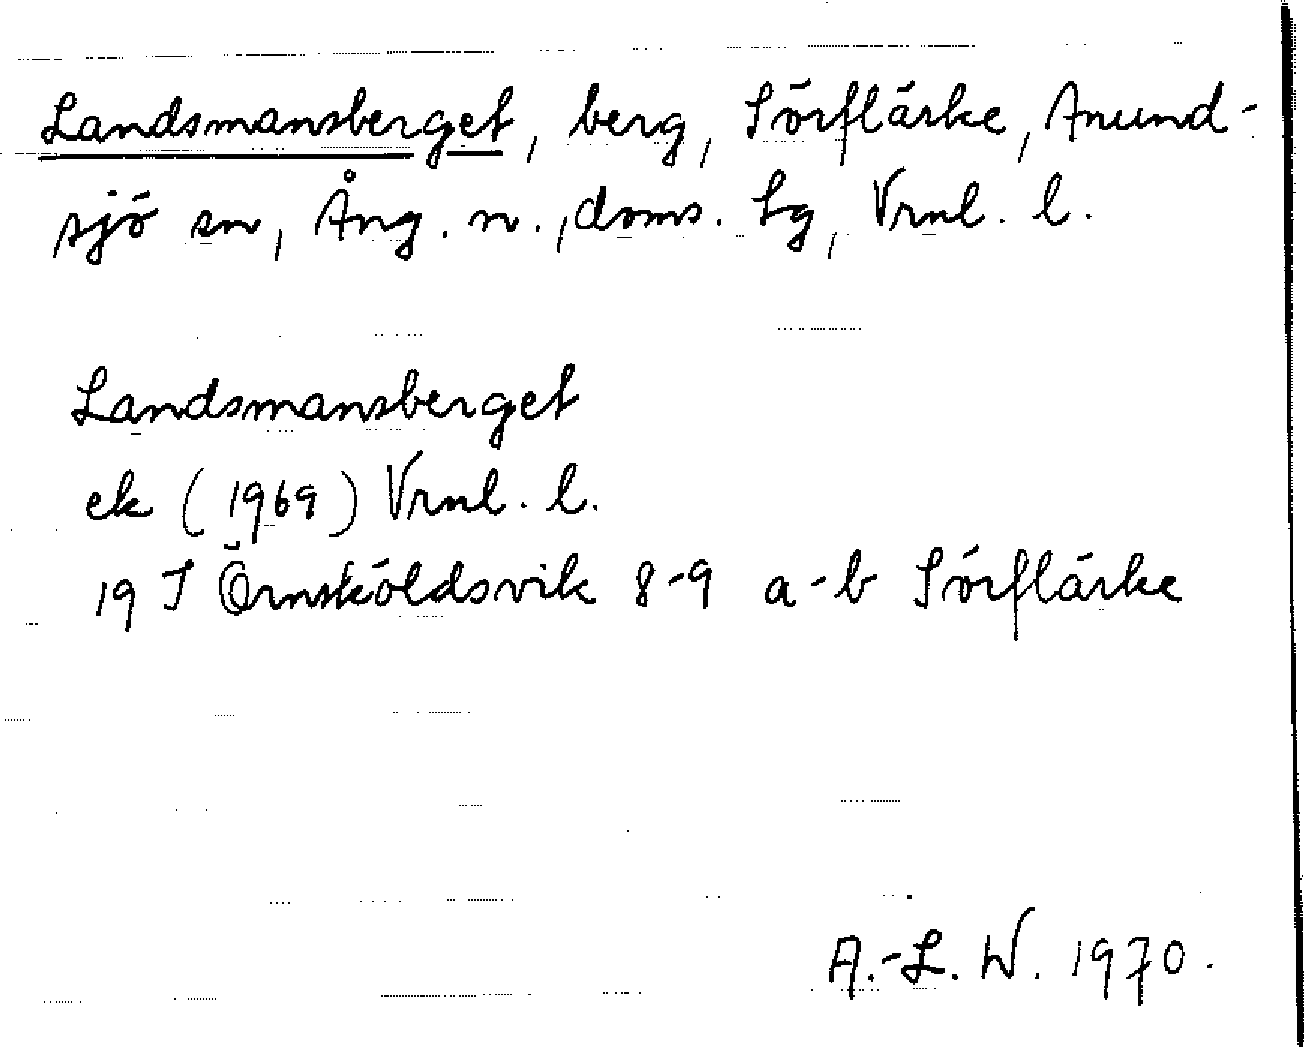 Landsmansberget, berg, Sörflärke, Anund-
sjö sn, Ång. n., doms. Lg, Vrnl. l.
Landsmansberget
ek (1969) Vrnl. l.
19 J Örnsköldsvik 8-9 a-b Sörflärke
A.-L. W. 1970.